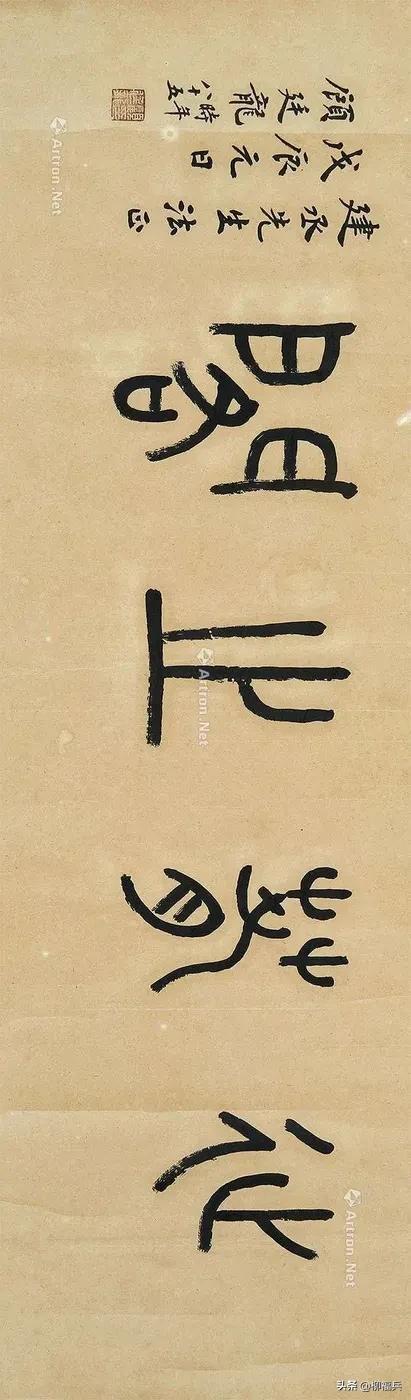 之閣
建丞先生法正
戊辰元日
顧廷龍
時年八十五
Artron.Net
Artron.Net
Artron.Net
头条 @柳福兵